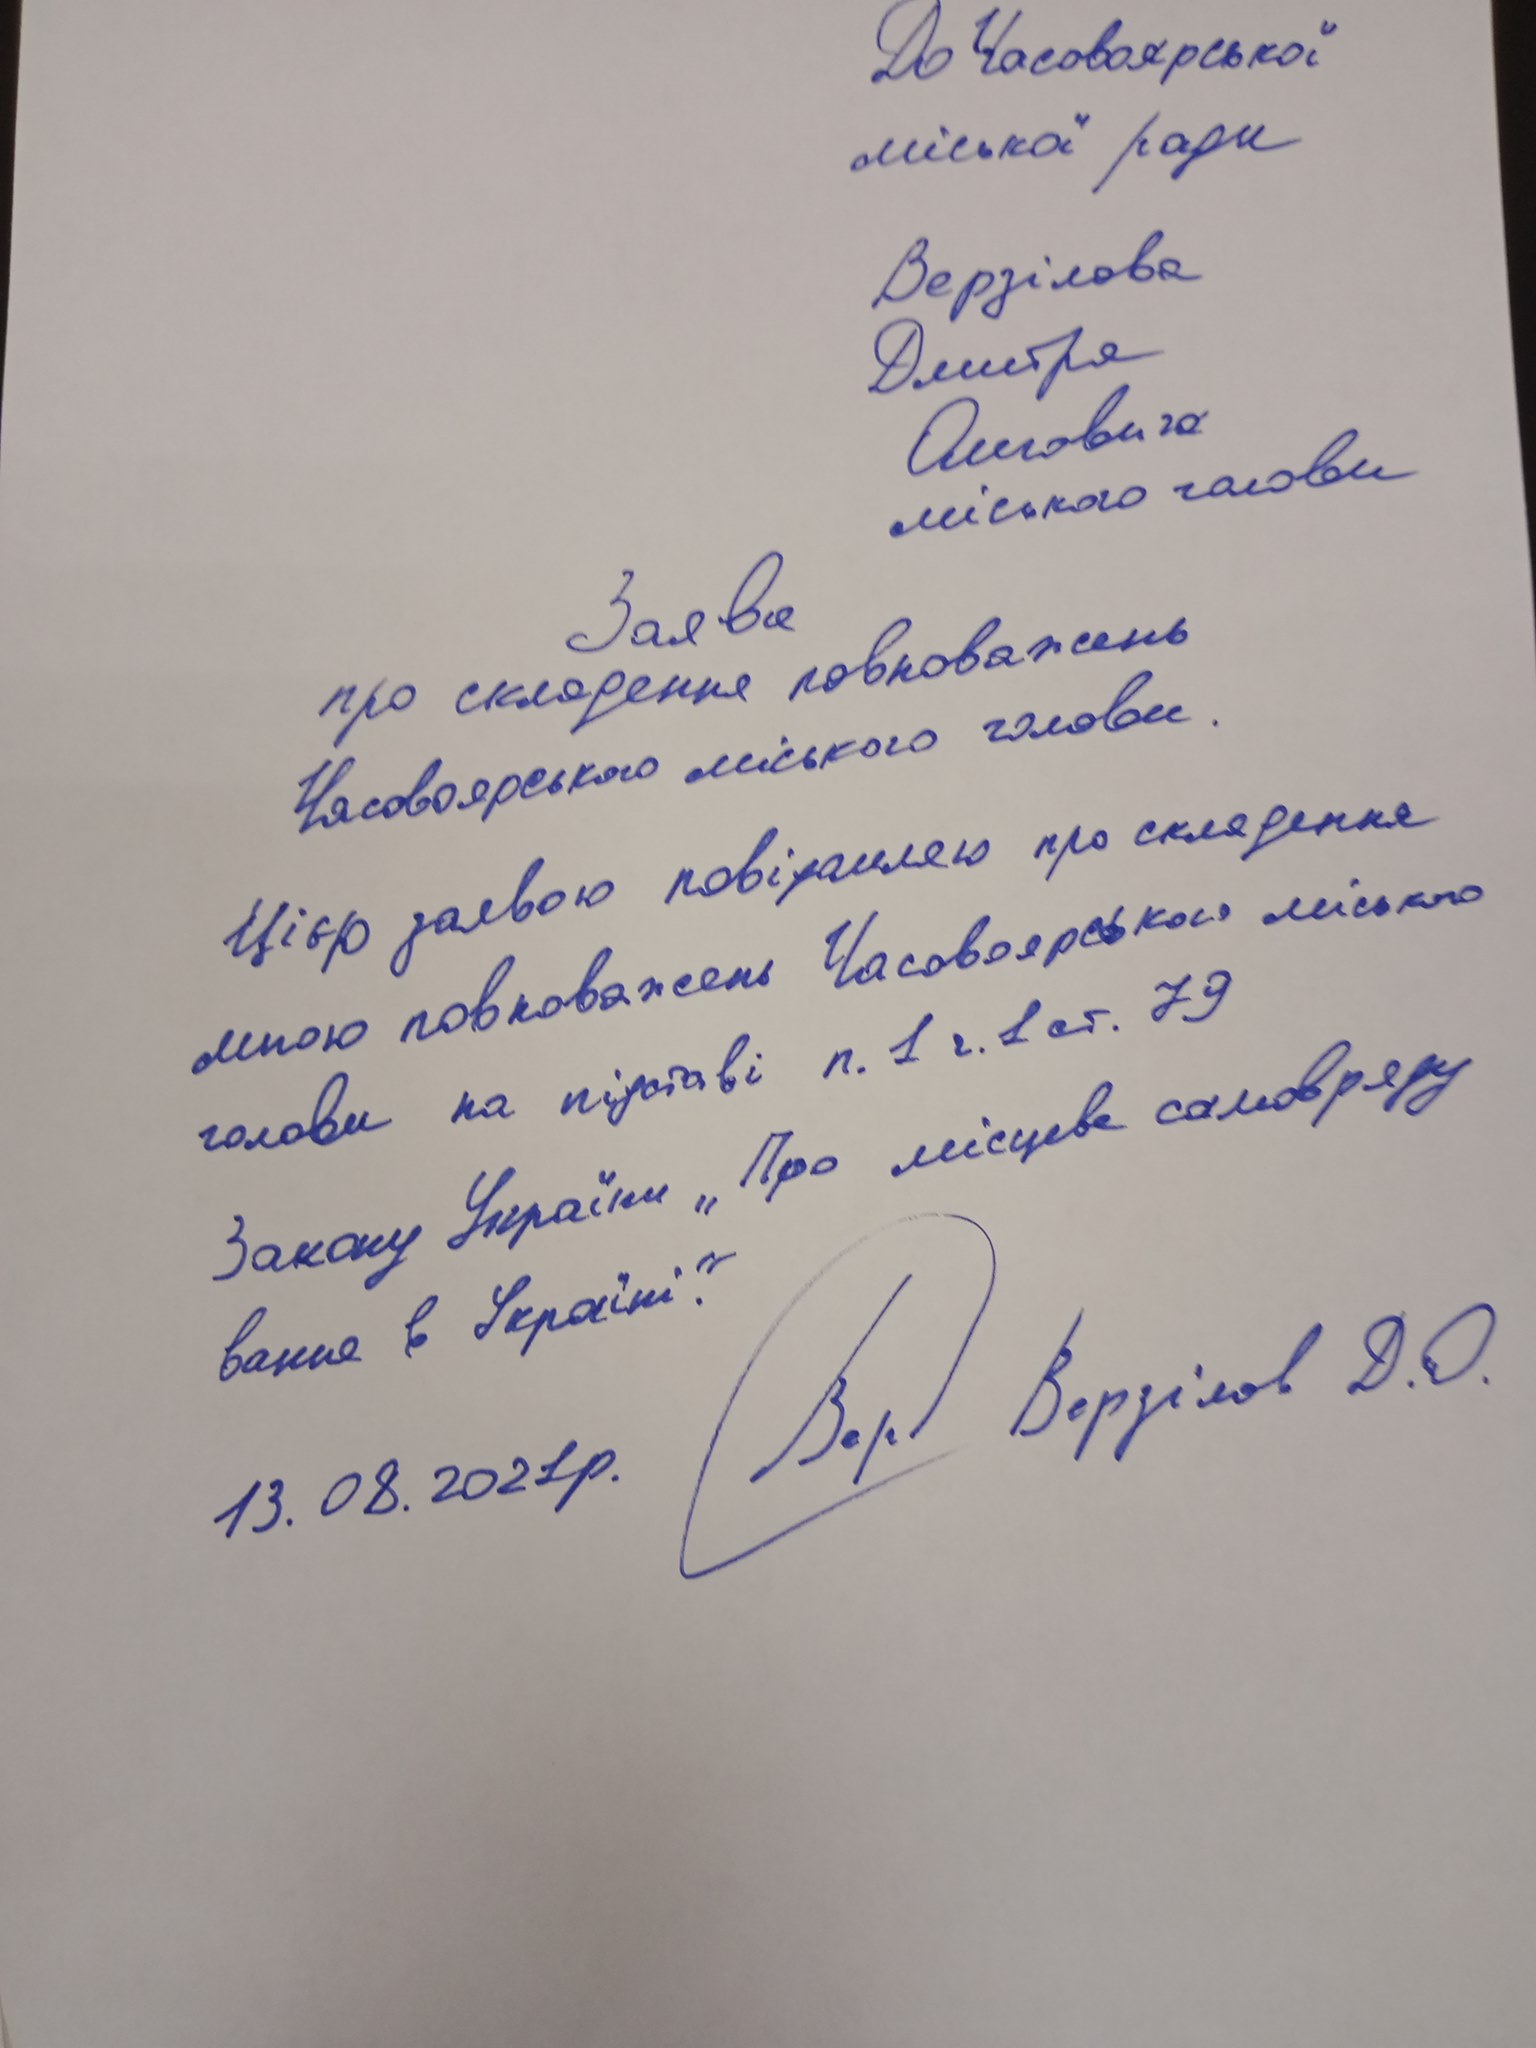 До Часовоярської
міської ради
Верзілова
Дмитра
Олеговича
міського голови
Заява
про складення повноважень
Часовоярського міського голови.
Цією заявою повідомляю про складення
мною повноважень Часовоярського міського
голови на підставі п. 1 ч. 1 ст. 79
Закону України „Про місцеве самовряду
вання в Україні."
13.08.2021р. Вер Верзілов Д.О.